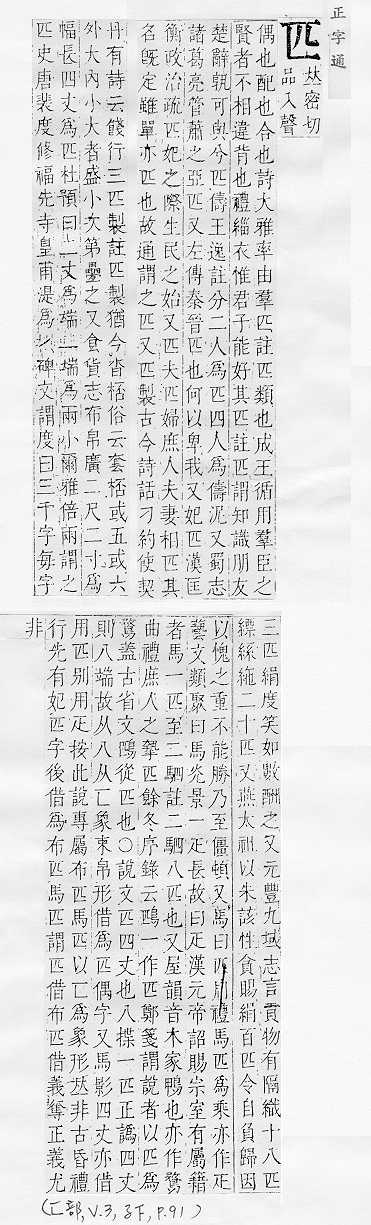 正字通
匹
夶密切
品入聲
偶也配也合也詩大雅率由羣匹註匹類也成王循用羣臣之
賢者不相違背也禮緇衣惟君子能好其匹註匹謂知識朋友
楚辭孰可與兮匹儔王逸註分二人為匹四人為儔泥又蜀志
諸葛亮管蕭之亞匹又左傳秦晉匹也何以卑我又妃匹漢匡
衡政治疏匹妃之際生民之始又匹夫匹婦庶人夫妻相匹其
名旣定雖單亦匹也故通謂之匹又匹製古今詩話刁約使契
丹有詩云餞行三匹製註匹製猶今沓桮俗云套桮或五或六
外大內小大者盛小次第疊之又食貨志布帛廣二尺二寸為
幅長四丈為匹杜預曰二丈為端二端為兩小爾雅倍兩謂之
匹史唐裴度修福先寺皇甫湜為碑文謂度曰三千字每字
三匹絹度笑如數酬之又元豐九域志言貢物有隔織十八匹
縹絲絁二十匹又燕太祖以朱該性貪賜絹百匹令自負歸因
以愧之重不能勝乃至僵頓又馬曰匹周禮馬匹為乘亦作疋
藝文類聚曰馬光景一疋長故曰疋漢元帝詔賜宗室有屬籍
者馬一匹至二駟註二駟八匹也又屋韻音木家鴨也亦作鶩
曲禮庶人之摯匹餘冬序錄云鴄一作匹鄭箋謂說者以匹為
鶩蓋古省文鴄從匹也○說文匹四丈也八揲一匹正譌四丈
則八端故从八从匸象束帛形借為匹偶字又馬影四丈亦借
用匹別用疋按此說專屬布匹馬匹以匸為象形夶非古昏禮
行先有妃匹字後借為布匹馬匹謂匹借布匹借義奪正義尤
非
(匸部, V.3, 子下, P.91)